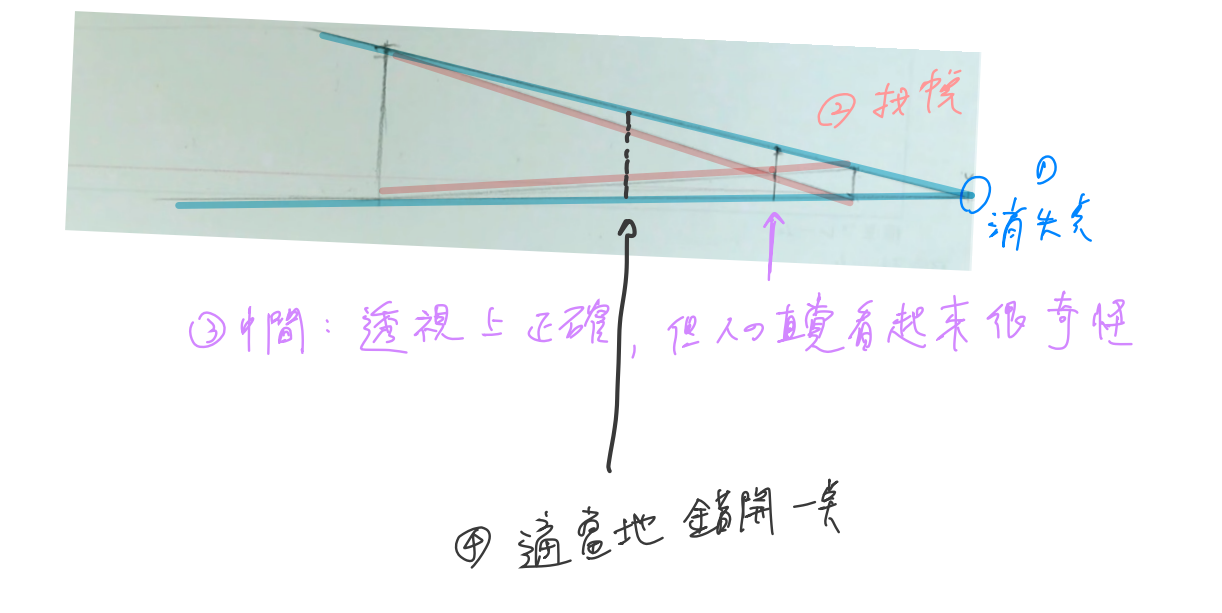 ② 找中心
①
消失点
③ 中間：透視上正確，但人の直覺看起來很奇怪
④ 適當地 錯開一点